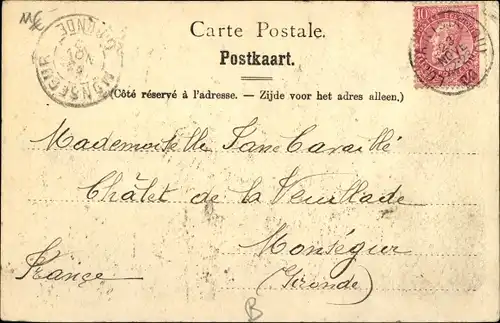 Carte Postale.
Postkaart.
(Côté réservé à l'adresse. — Zijde voor het adres alleen.)
MONSEGUR
GIRONDE
10
Mademoiselle Jane Cavaillé
Châlet de la Veuillade
Monségur
France
(Gironde)
B